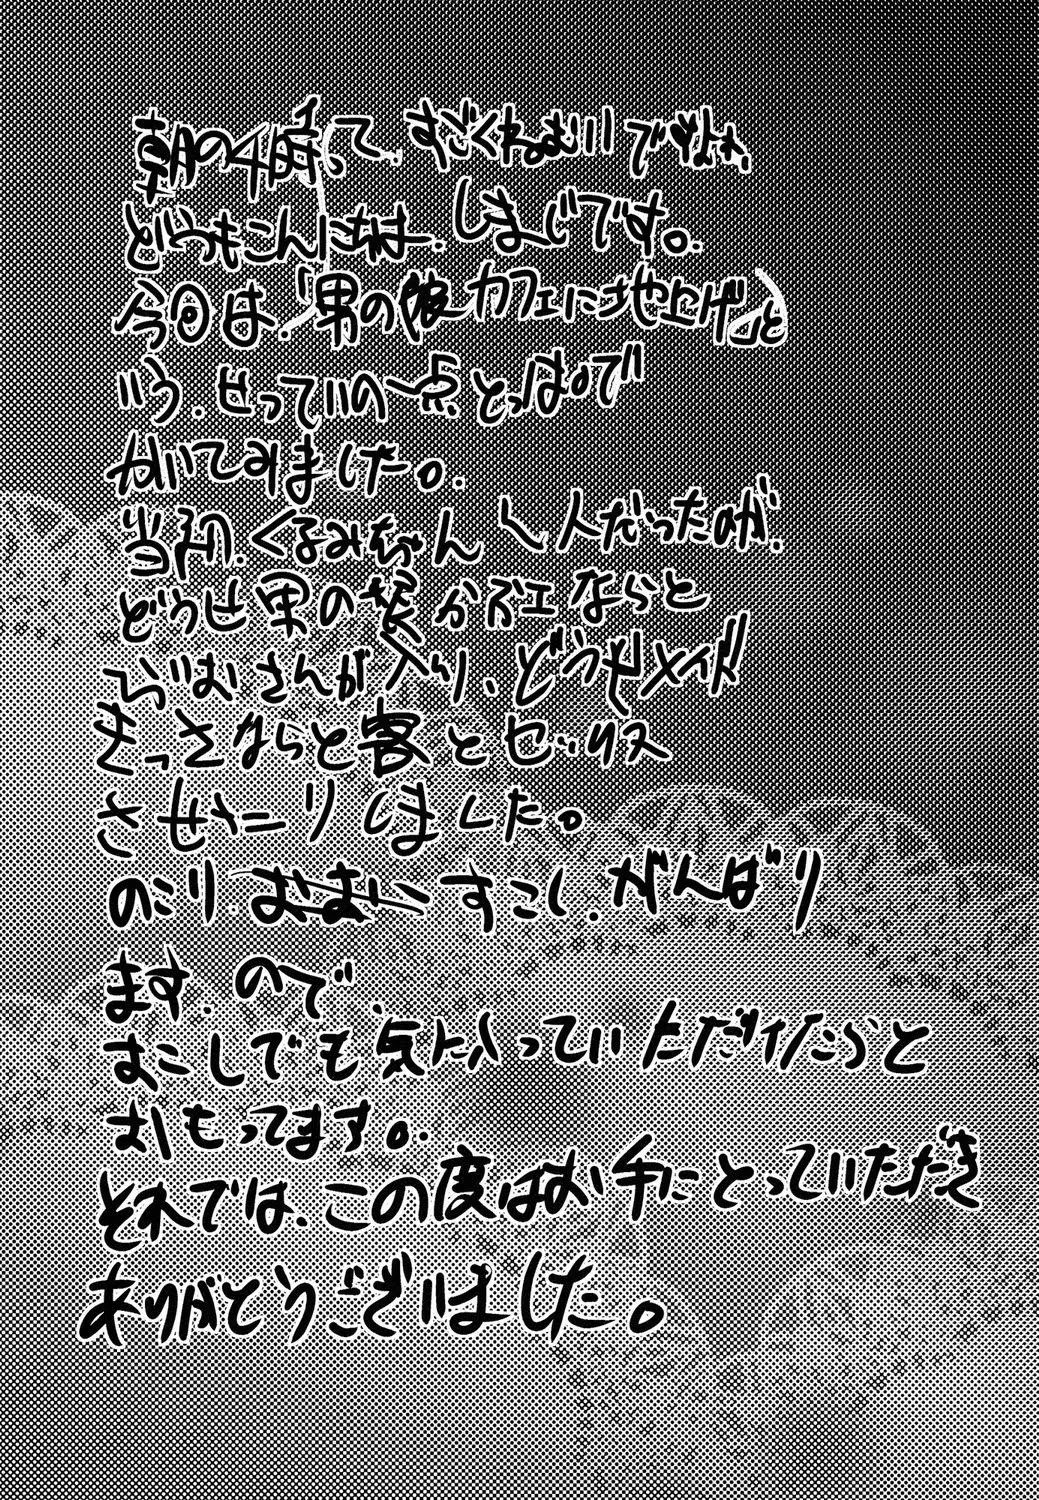 朝の4時って、すごくねむいですよね、
どうもこんにちは、しまじです。
今回は、「男の娘カフェに地上げ」と
いう、せっていの一点とっぱで
かいてみました。
当初、くるみちゃん 1人だったのが、
どうせ男の娘かふェならと
らじおさんが入り、どうせメイド
きっさならと客とセックス
させたりしました。
のこり すこし、がんばり
ます、ので、
すこしでも気に入っていただけたらと
おもってます。
それでは、この度はお手にとっていただき
ありがとうございました。